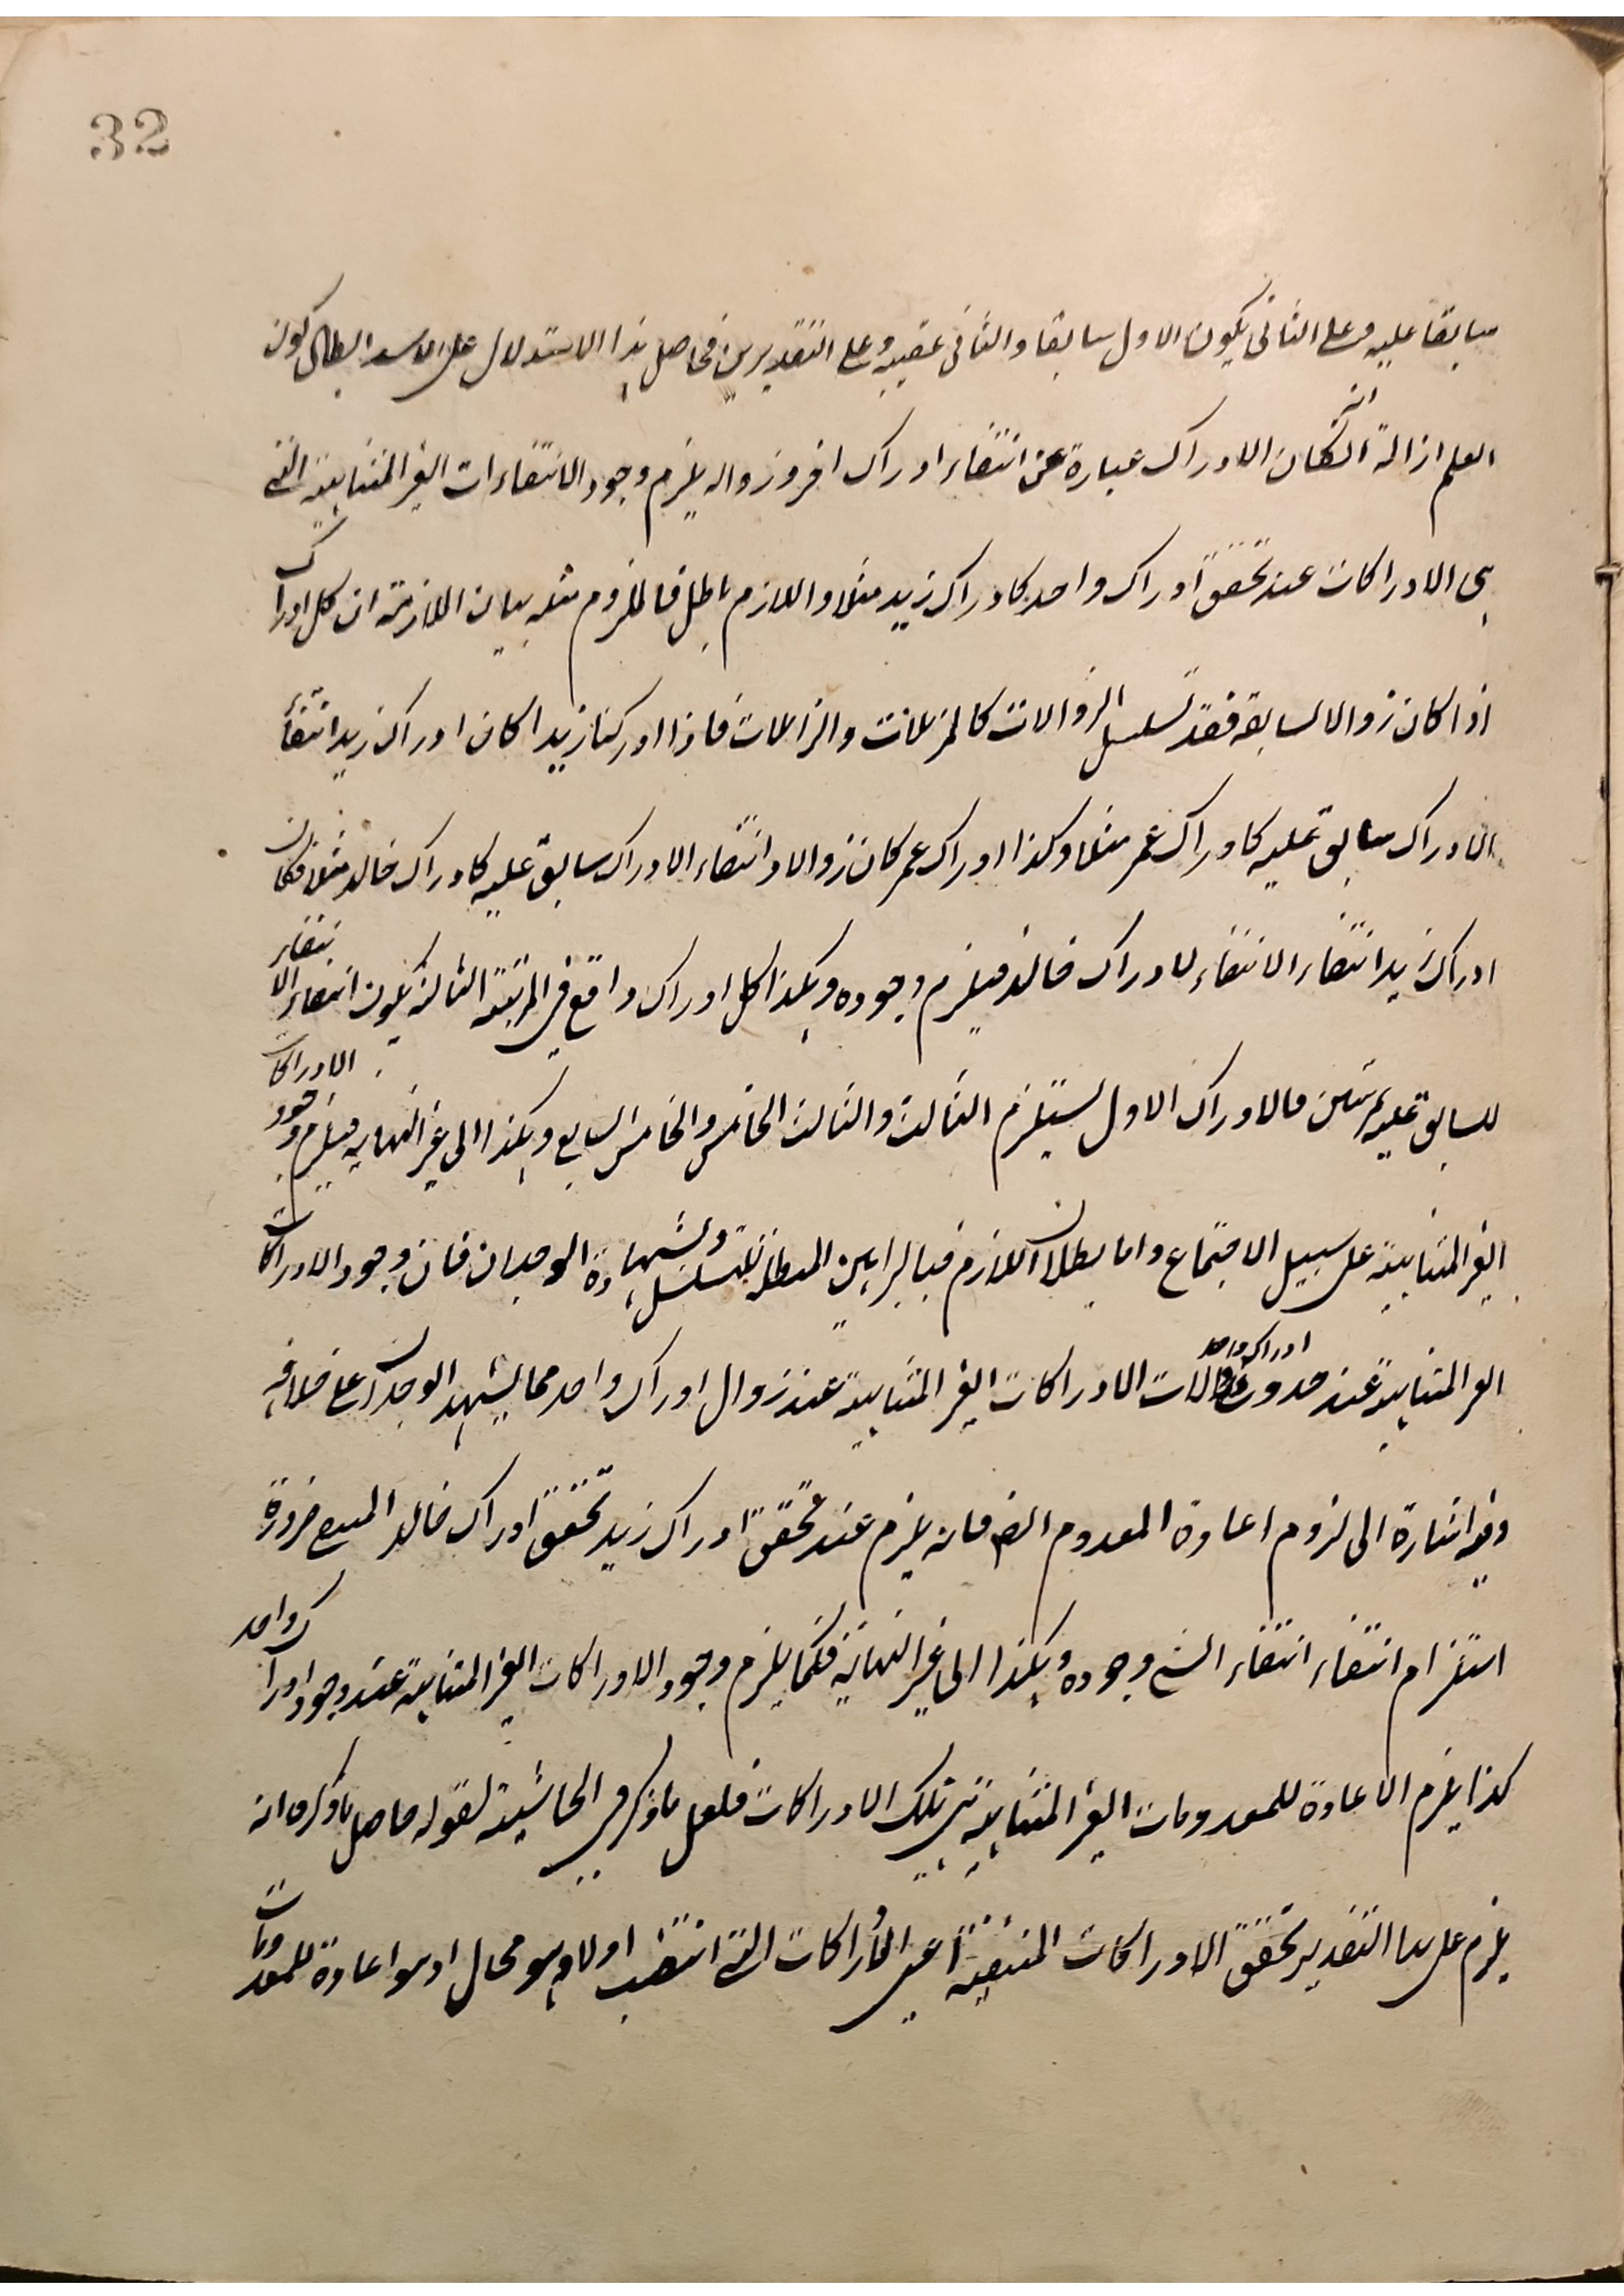 32
سابقا عليه وعلى الثانى يكون الاول سابقا والثانى عقيبه وعلى التقديرين فحاصل هذا الاستدلال على ابطال كون
العلم ازالة انه ان كان الادراك عبارة عن انتفاء ادراك اخر وزواله يلزم وجود الانتفاءات الغير المتناهية التى
هى الادراكات عند تحقق ادراك واحد كادراك زيد مثلا واللازم باطل فالملزوم مثله بيان الملازمة ان كل ادراك
اذا كان زوالا لسابقه فقد تسلسل الزوالات كالمزيلات والزائلات فاذا ادركنا زيدا كان ادراك زيد انتفاء
الادراك سابق عليه كادراك عمر مثلا وكذا ادراك عمر كان زوالا وانتفاء الادراك سابق عليه كادراك خالد مثلا فكان
ادراك زيد انتفاء الانتفاء لادراك خالد فيلزم وجوده وهكذا كل ادراك واقع فى المرتبة الثالثة يكون انتفاء الانتفاء
للسابق عليه بمرتبتين فالادراك الاول يستلزم الثالث والثالث الخامس والخامس السابع وهكذا الى غير النهاية فيلزم وجود الادراكات
الغير المتناهية على سبيل الاجتماع واما بطلان اللازم فبالبراهين المبطلة للتسلسل وبشهادة الوجدان فان وجود الادراكات
الغير المتناهية عند حدوث ادراك واحد الادراكات الغير المتناهية عند زوال ادراك واحد مما يشهد الوجدان على خلافه
وفيه اشارة الى لزوم اعادة المعدوم ايضا فانه يلزم عند تحقق ادراك زيد تحقق ادراك خالد ضرورة
استلزام انتفاء انتفاء الشئ وجوده وهكذا الى غير النهاية فكما يلزم وجود الادراكات الغير المتناهية عند وجود ادراك واحد
كذا يلزم الاعادة للمعدومات الغير المتناهية هى تلك الادراكات فلعل ما ذكر فى الحاشية لقوله حاصل ما ذكره انه
يلزم على هذا التقدير تحقق الادراكات المنتفية اعنى الادراكات التى انتفت اولا وهو محال اذ هو اعادة للمعدومات